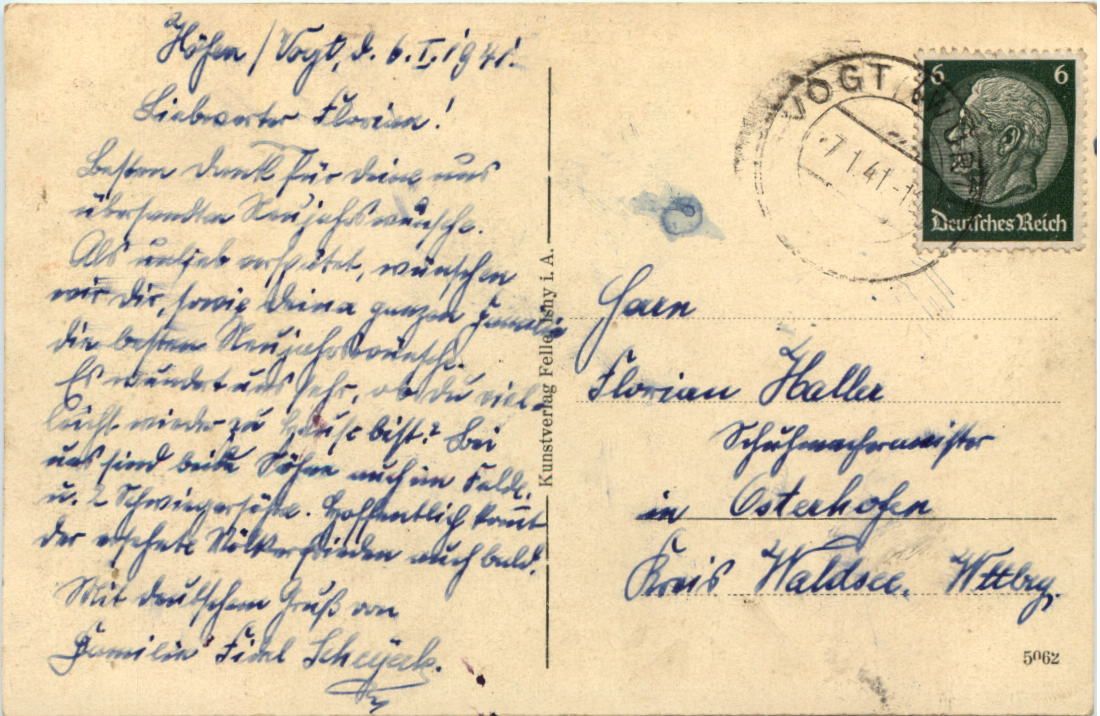 Höfen / Vogt, d. 6. I. 1941.
Liebwerter Florian!
Besten Dank für Deine uns
übersandten Neujahrswünsche.
Als unlieb verspätet, wünschen
wir Dir, sowie Deiner ganzen Familie
die besten Neujahrswünsche.
Es wundert uns sehr, ob du viel-
leicht wieder zu Hause bist? Bei
uns sind beide Söhne auch im Felde,
u. 2 Schwiegersöhne. Hoffentlich kommt
der ersehnte Völkerfrieden auch bald.
Mit deutschem Gruß von
Familie Fidel
Kunstverlag Isny i. A.
VOGT
7.1.41
6 6
Deutsches Reich
Herrn
Florian Haller
Schuhmachermeister
in Osterhofen
Kreis Waldsee. Wttbg.
5062